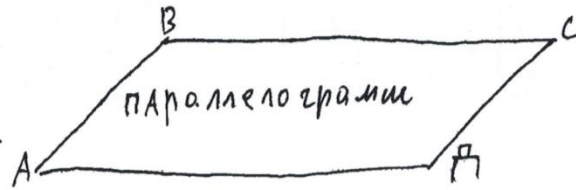 В
С
пАраллелограмм
А
Д